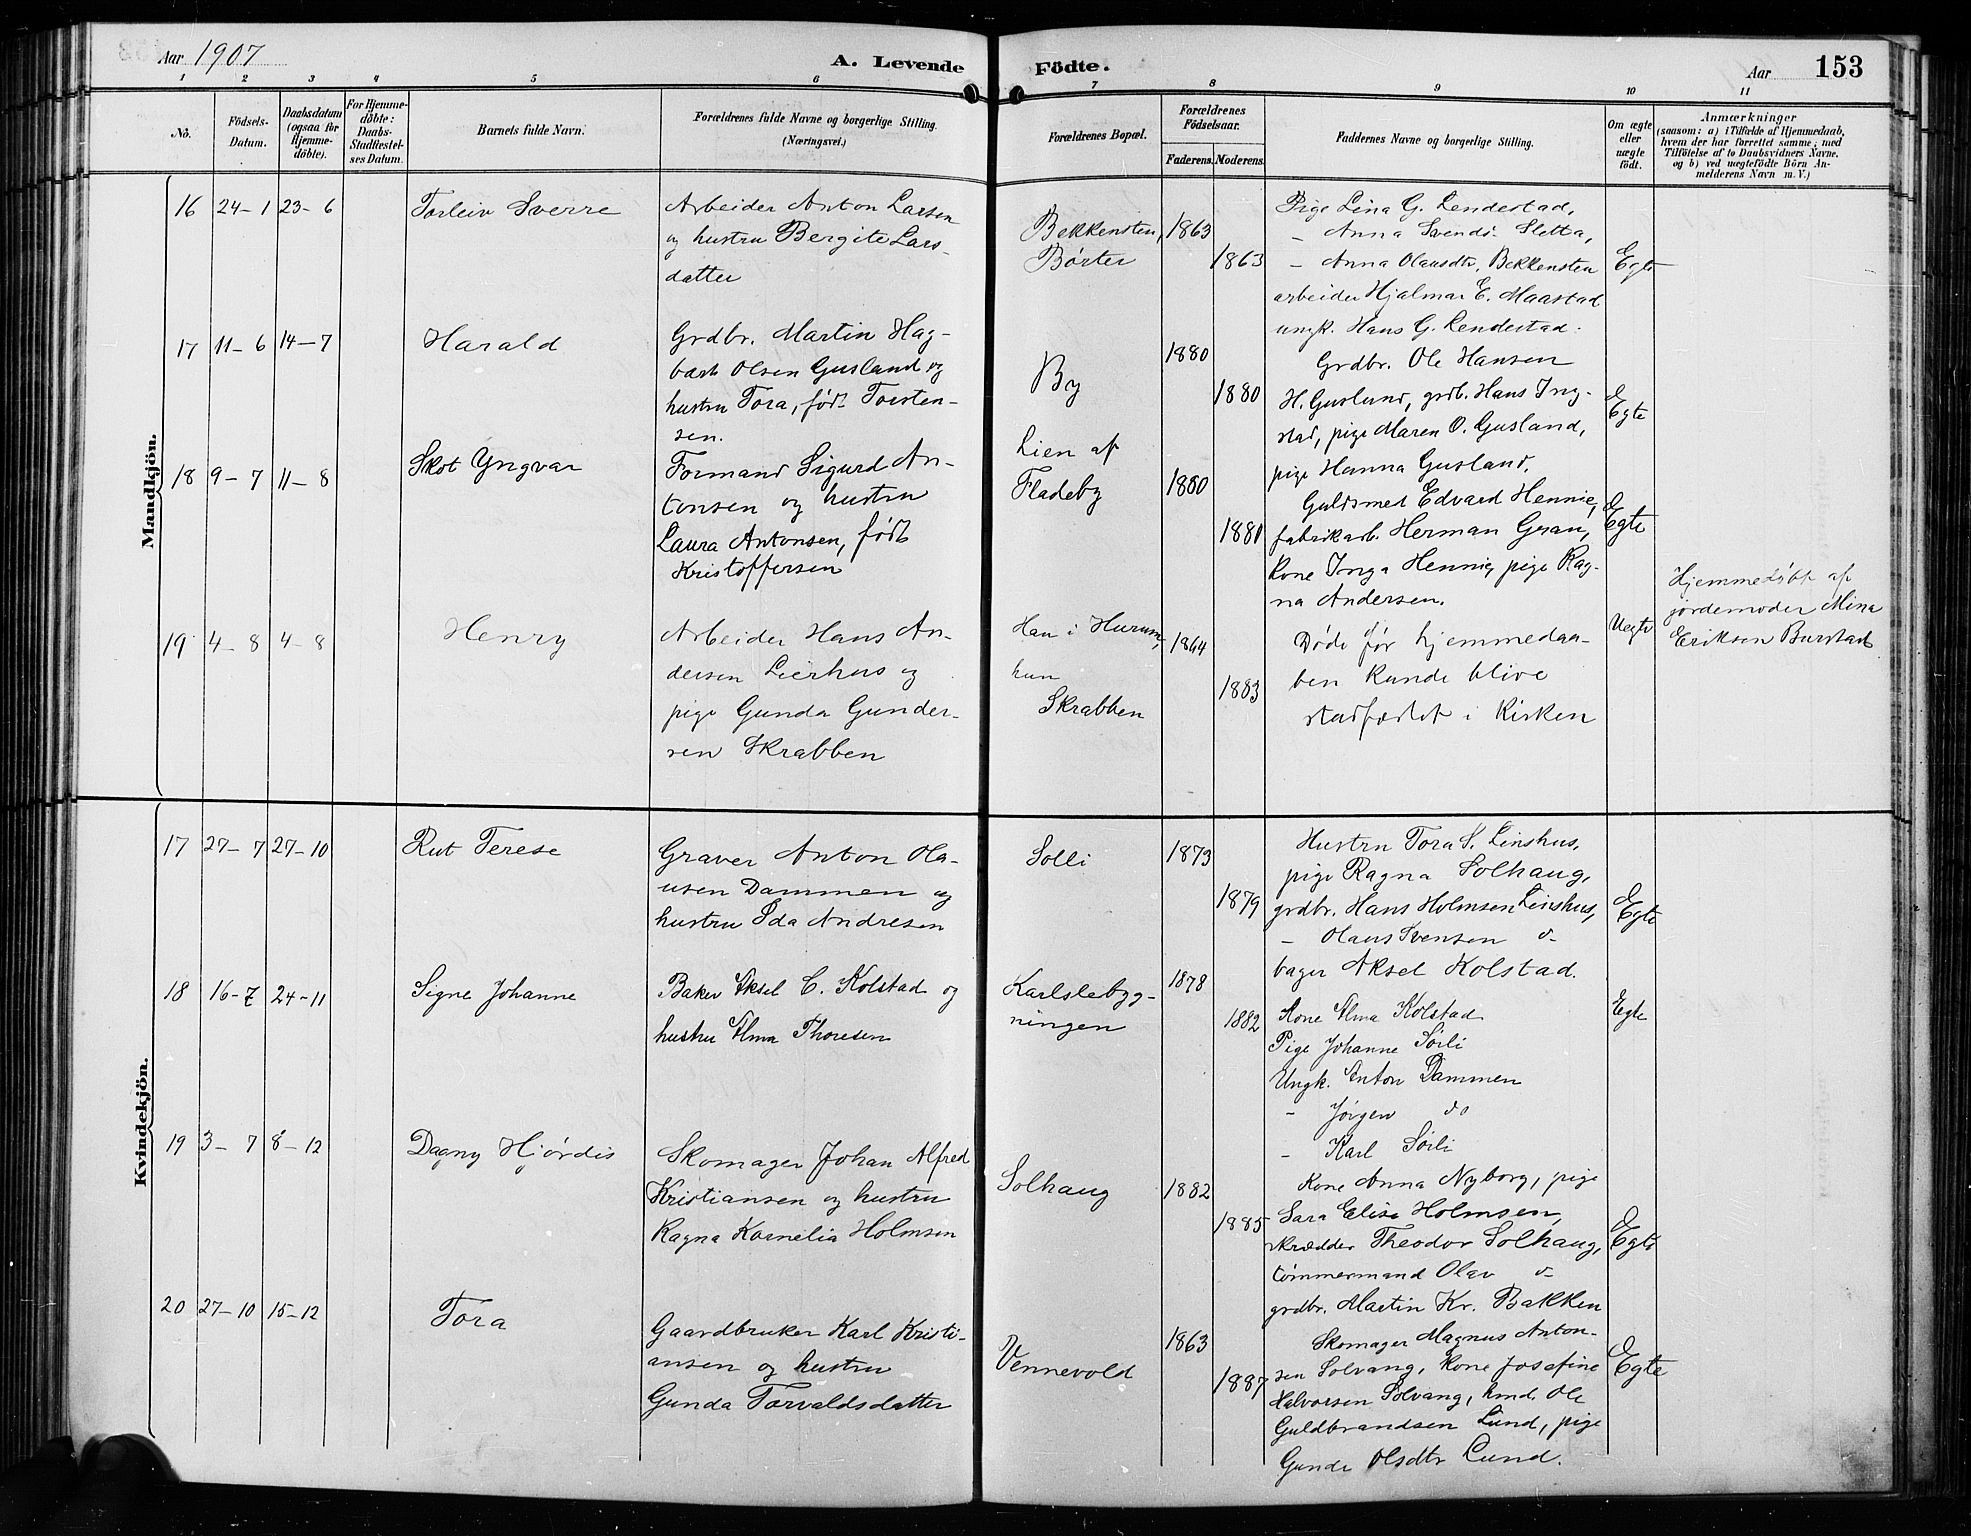 Aar 1907
A. Levende Födte.
Aar
153
1 2 3 4 5 6 7 8 9 10 11
No.
Födsels-Datum.
Daabsdatum (ogsaa for Hjemme-döbte).
For Hjemme-döbte: Daabs-Stadfæstel-ses Datum.
Barnets fulde Navn.
Forældrenes fulde Navne og borgerlige Stilling. (Næringsvei.)
Forældrenes Bopæl.
Forældrenes Födselsaar.
Faderens. Moderens.
Faddernes Navne og borgerlige Stilling.
Om ægte eller uægte födt.
Anmærkninger
(saasom: a) i Tilfælde af Hjemmedaab,
hvem der har forrettet samme, med
Tilföielse af to Daabsvidners Navne,
og b) ved uegtefödte Börn An-
melderens Navn m. V.)
Mandkjön.
16 24-1 23-6 Torleiv Sverre
Arbeider Anton Larsen
og hustru Bergite Lars
datter
Bekkensten,
Børter
1863
1863
Pige Lina G. Lendestad,
- Anna Svends. Sletta,
- Anna Olausdtr. Bekkensten
arbeider Hjalmar E. Maastad
ungk. Hans G. Lendestad.
Egte
17 11-6 14-7 Harald
Grdbr. Martin Hag-
bart Olsen Gusland og
hustru Tora, født Torsten-
sen.
By
1880
1880
Grdbr. Ole Hansen
H. Gusland, grdb. Hans Ing-
stad, pige Maren O. Gusland,
pige Hanna Gusland.
Egte
18 9-7 11-8 Skot Yngvar
Formand Sigurd An-
tonsen og hustru
Laura Antonsen, født
Kristoffersen
Lien af
Fladeby
1880
1881
Guldsmed Edvard Hennie,
fabrikarb. Herman Gran,
Kone Inga Hennie, pige Rag-
na Andersen.
Egte
19 4-8 4-8 Henry
Arbeider Hans An-
dersen Lierhus og
pige Gunda Gunder-
sen Skrabben
Han i Hurum,
hun
Skrabben
1864
1883
Døde før hjemmedaa-
ben kunde blive
stadfæstet i Kirken
Uegte
Hjemmedøbt af
jordemoder Mina
Eriksen Burstad
Kvindekjön.
17 27-7 27-10 Rut Terese
Graver Anton Ola-
usen Dammen og
hustru Ida Andresen
Solli
1873
1879
Hustru Tora S. Linshus,
pige Ragna Solhaug,
grdbr. Hans Holmsen Linshus,
- Olaus Svensen do
bager Aksel Kolstad.
Egte
18 16-7 24-11 Signe Johanne
Baker Aksel C. Kolstad og
hustru Alma Thoresen
Karlslebyg-
ningen
1878
1882
Kone Alma Kolstad
Pige Johanne Sørli
Ungk. Anton Dammen
- Jørgen do
- Karl Sørli
Egte
19 3-7 8-12 Dagny Hjørdis
Skomager Johan Alfred
Kristiansen og hustru
Ragna Kornelia Holmsen
Solhaug
1882
1885
Kone Anna Nyborg, pige
Sara Elise Holmsen,
skrædder Theodor Solhaug,
tømmermand Olav do
grdbr. Martin Kr. Bakken
Egte
20 27-10 15-12 Tora
Gaardbruker Karl Kristi-
ansen og hustru
Gunda Torvaldsdatter
Vennevold
1863
1887
Skomager Magnus Anton-
sen Solvang, Kone Josefine
Halvorsen Solvang, hmd. Ole
Guldbrandsen Lund, pige
Gunda Olsdtr Lund.
Egte